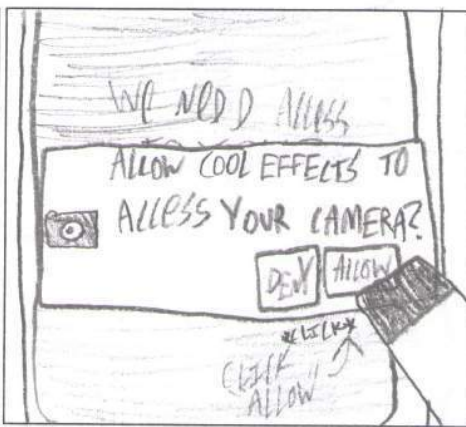 WE NEED ACCESS
ALLOW COOL EFFECTS TO
ACCESS YOUR CAMERA?
DENY
ALLOW
*CLICK*
CLICK
ALLOW